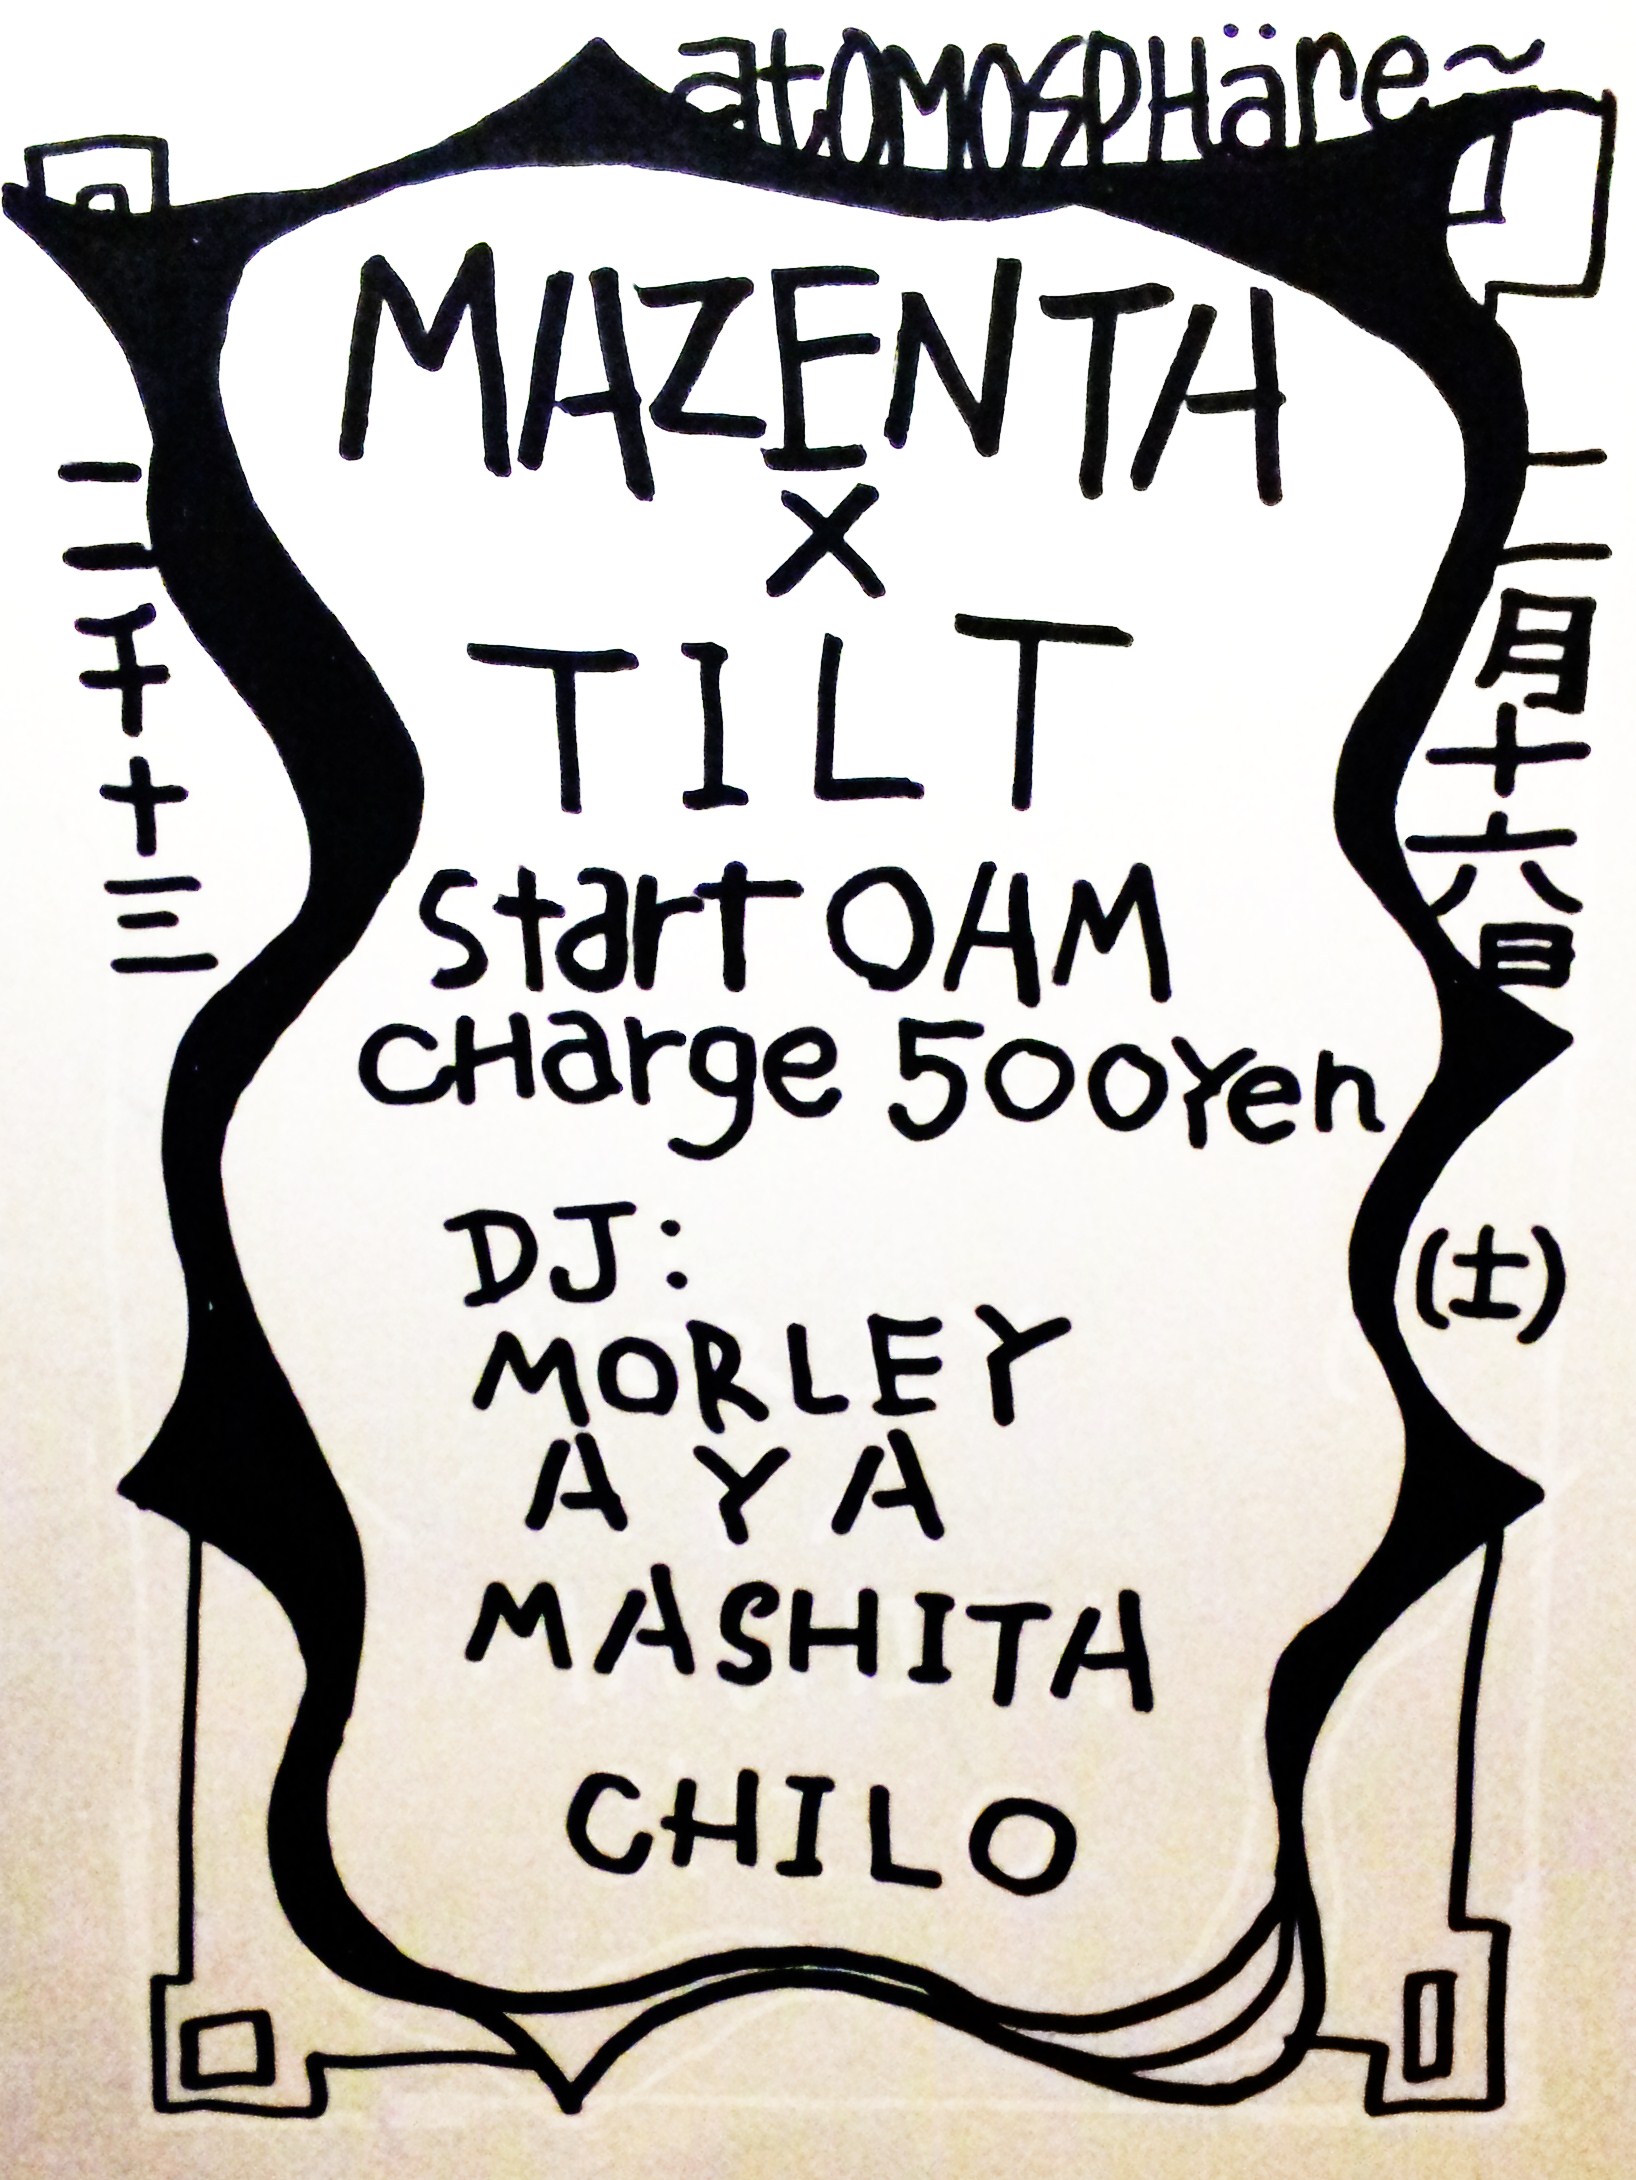 atOMOSPHäre~
MAZENTA
×
TILT
Start 0AM
CHarge 500Yen
DJ:
MORLEY
AYA
MASHITA
CHILO
二千十三
二月十六日
(土)